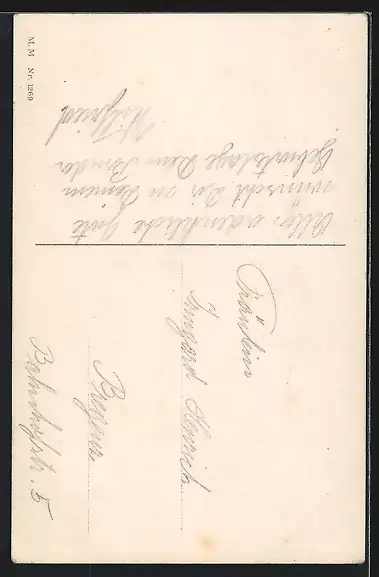 Alles erdenkliche Gute
wünscht Dir zu Deinem
Geburtstage Dein Bruder
Wilfried
Fräulein
Irmgard Heinrich
Bregenz
Bahnhofstr. 5
M. M Nr. 1269